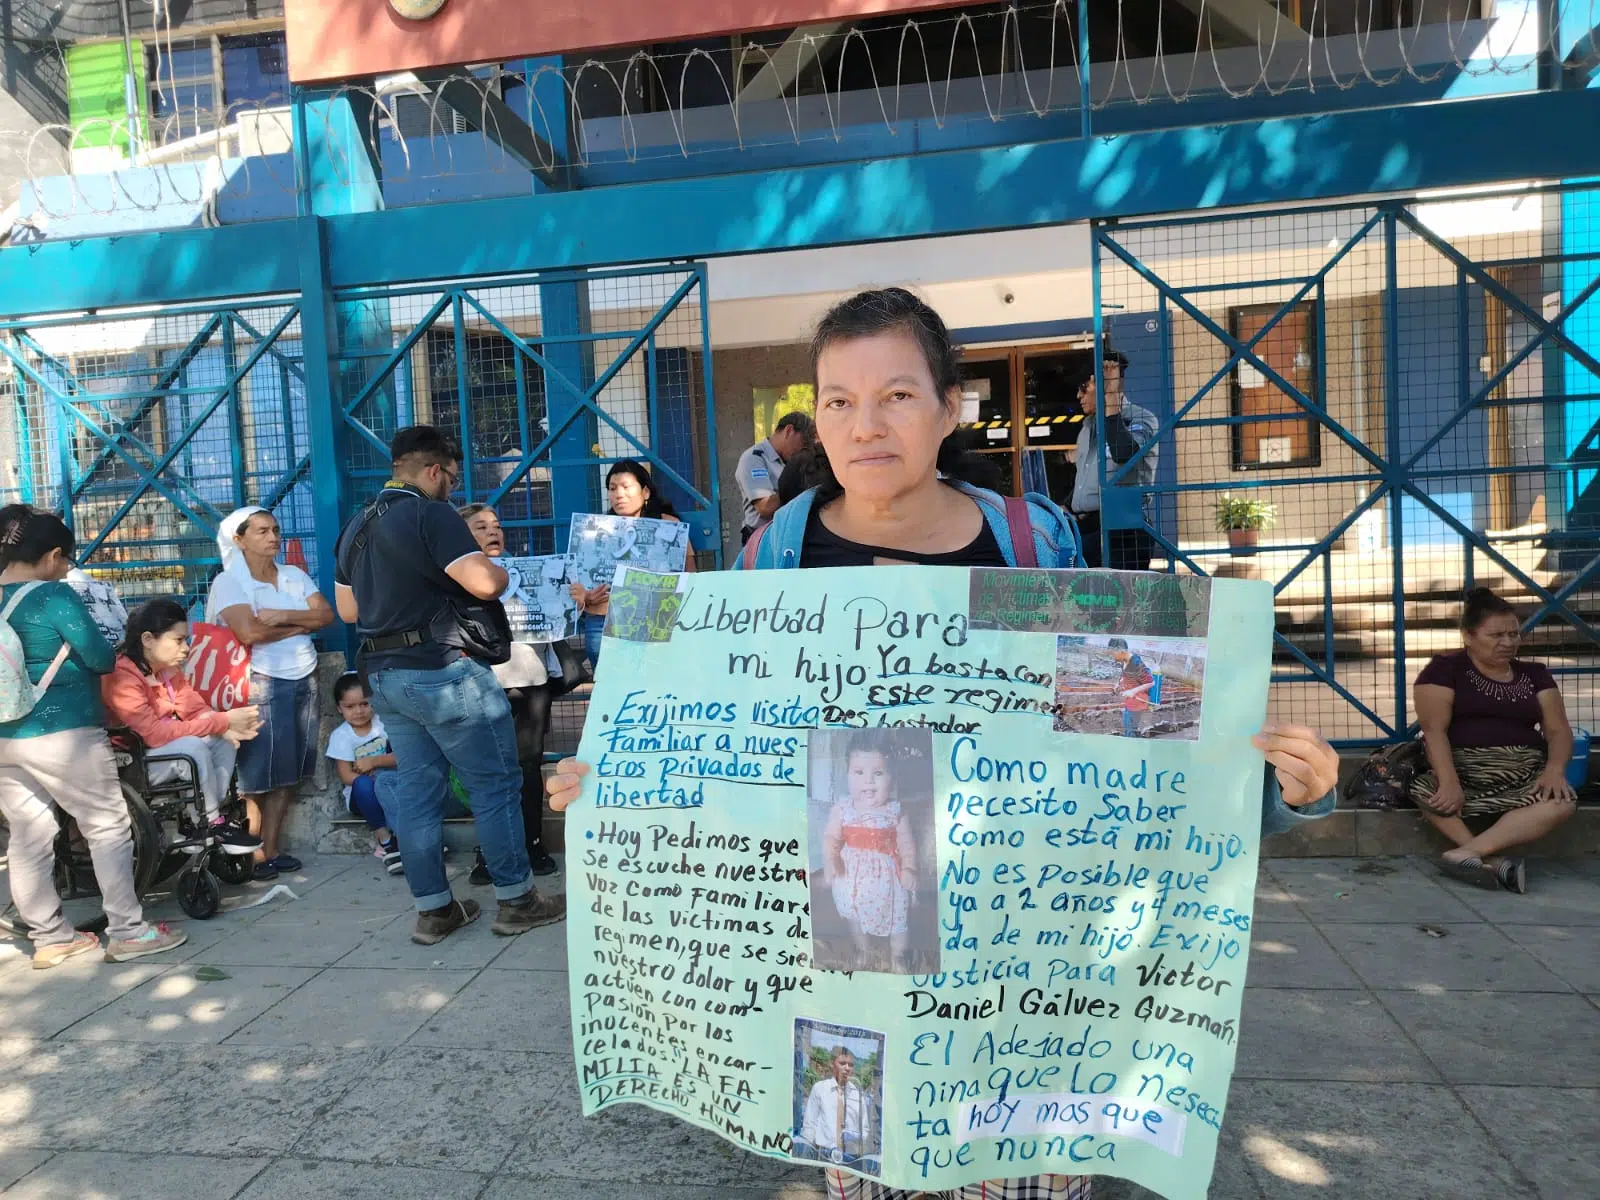 MOVIR
Movimiento
de Víctimas
del Régimen
MOVIR
Libertad Para
mi hijo Ya basta con
Este regimen
Des bastador
• Exijimos visita
Familiar a nues-
tros Privados de
libertad
• Hoy Pedimos que
se escuche nuestra
voz como Familiare
de las victimas de
regimen, que se sie
nuestro dolor y que
actúen con com-
Pasión Por los
inocentes encar-
celados." LA FA-
MILIA ES UN
DERECHO HUMANO
Como madre
necesito Saber
como está mi hijo.
No es Posible que
ya a 2 años y 4 meses
da de mi hijo. Exijo
Justicia para Victor
Daniel Gálvez Guzmán.
El Adejado una
nina que Lo neseci
ta hoy mas que
que nunca